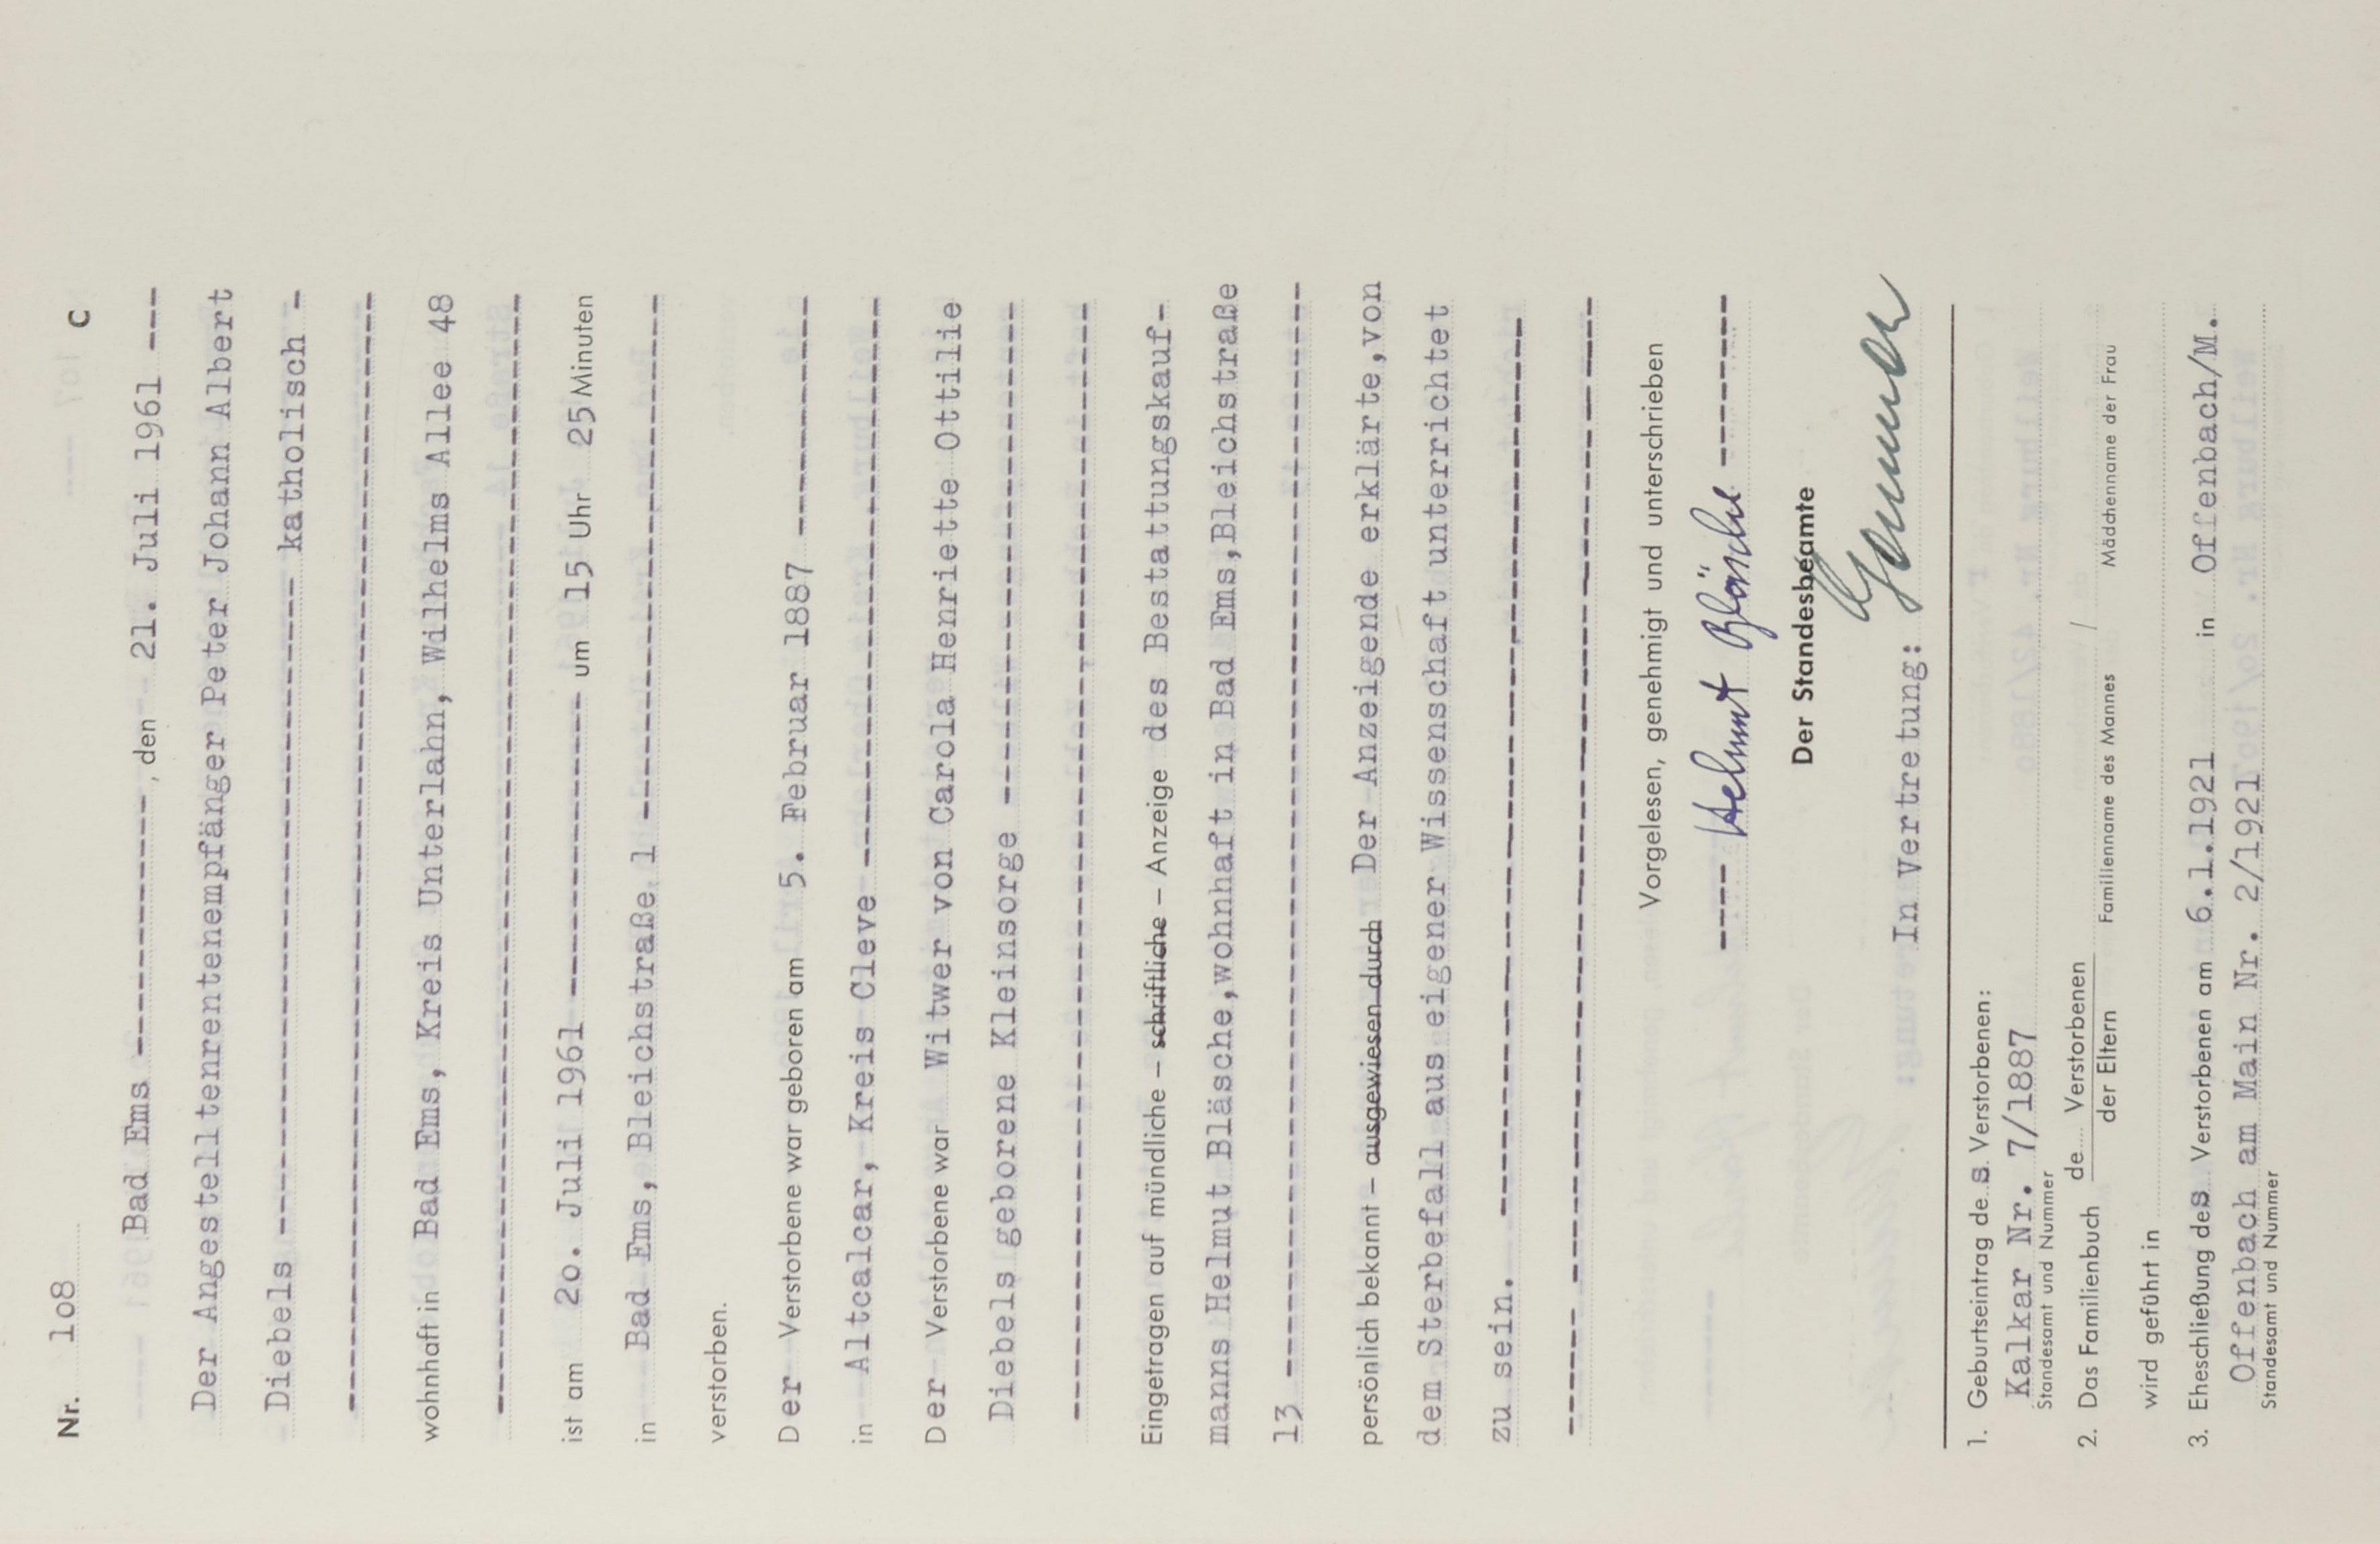 Nr. 1o8 C
Bad Ems -------------, den 21. Juli 1961 ---
Der Angestelltenrentenempfänger Peter Johann Albert
Diebels ---------------------------------- katholisch -
--------------------------------------------------------
wohnhaft in Bad Ems, Kreis Unterlahn, Wilhelms Allee 48
--------------------------------------------------------
ist am 2o. Juli 1961 --------------- um 15 Uhr 25 Minuten
in Bad Ems, Bleichstraße 1 --------------------------
verstorben.
Der Verstorbene war geboren am 5. Februar 1887 ------------
in Altcalcar, Kreis Cleve ----------------------------
Der Verstorbene war Witwer von Carola Henriette Ottilie
Diebels geborene Kleinsorge -------------------------
------------------------------------------------------
Eingetragen auf mündliche – schriftliche – Anzeige des Bestattungskauf-
manns Helmut Bläsche,wohnhaft in Bad Ems,Bleichstraße
13 ------------------------------------------------------
persönlich bekannt – ausgewiesen durch Der Anzeigende erklärte,von
dem Sterbefall aus eigener Wissenschaft unterrichtet
zu sein. ---------------------------------------------
------------------------------------------------------
Vorgelesen, genehmigt und unterschrieben
---- Helmut Bläsche ---------
Der Standesbeamte
In Vertretung:
1. Geburtseintrag des Verstorbenen:
Kalkar Nr. 7/1887
Standesamt und Nummer
2. Das Familienbuch de Verstorbenen /
der Eltern Familienname des Mannes Mädchenname der Frau
wird geführt in
3. Eheschließung des Verstorbenen am 6.1.1921 in Offenbach/M.
Offenbach am Main Nr. 2/1921
Standesamt und Nummer